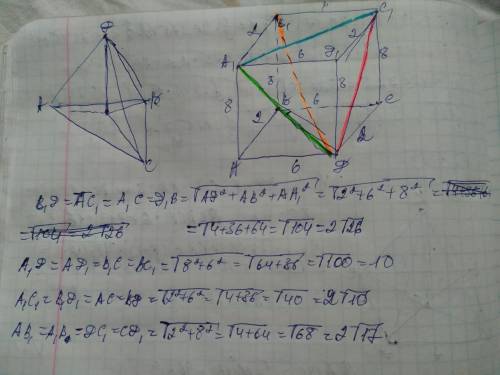 Ф
А
В
С
B₁
C₁
2
A₁
6
Д₁
2
8
8
8
8
В
6
С
2
2
А
6
Д
B₁Д = AC₁ = A₁C = Д₁B = √AД² + AB² + AA₁² = √2² + 6² + 8² =
= √4+36+64 = √104 = 2√26
A₁Д = AД₁ = B₁C = BC₁ = √8²+6² = √64+36 = √100 = 10
A₁C₁ = B₁Д₁ = AC = BД = √2²+6² = √4+36 = √40 = 2√10
AB₁ = A₁B = ДC₁ = CД₁ = √2²+8² = √4+64 = √68 = 2√17